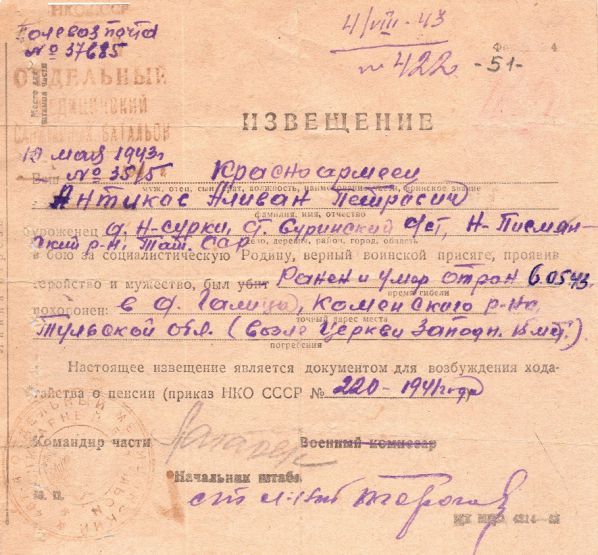 НКО СССР
Полевая почта
№ 37685
ОТДЕЛЬНЫЙ
МЕДИЦИНСКИЙ
САНИТАРНЫЙ БАТАЛЬОН
4/VIII-43
№ 422
Форма 4
-51-
ИЗВЕЩЕНИЕ
10 мая 1943г
№ 35/5 Красноармеец
муж, отец, сын, брат, должность, наименование части, воинское звание
Антикас Аливан Петрасич
фамилия, имя, отчество
уроженец д. Н-сурки, д. Суринский с/ст, Н-Писмян-
ский р-н, Тат. Сар
область, деревня, район, город, область
в бою за социалистическую Родину, верный воинской присяге, проявив
геройство и мужество, был убит Ранен и умер от ран 6.05.43
время гибели
похоронен: в д. Галица, Каменского р-на
точный адрес места
Тульской обл. (возле церкви Западн.
погребения
Настоящее извещение является документом для возбуждения хода-
тайства о пенсии (приказ НКО СССР № 220-1941года
Командир части
Военный комиссар
Начальник штаба
ст л-нт
М. П.